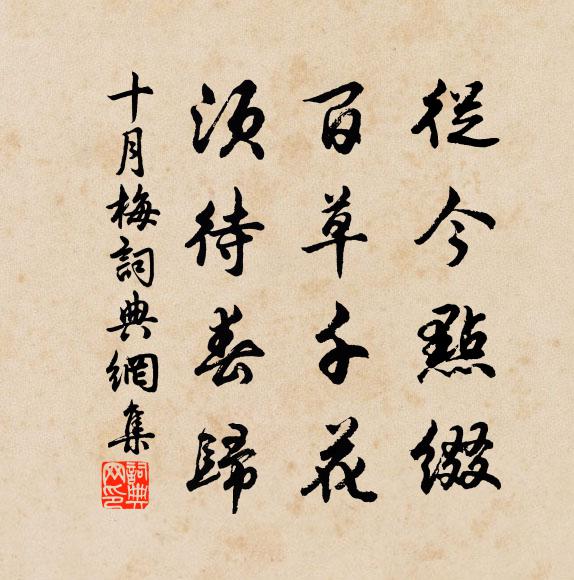 從今點綴
百草千花
須待春歸
十月梅詞典網集
詞典网印